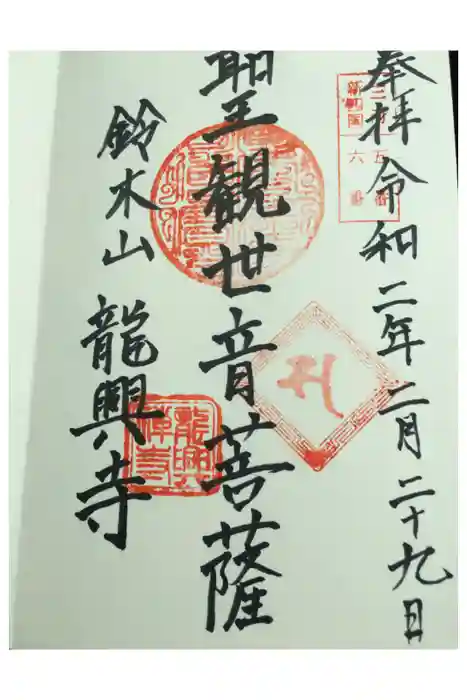 奉拝 令和二年二月二十九日
聖観世音菩薩
鈴木山 龍興寺
龍興
禅寺